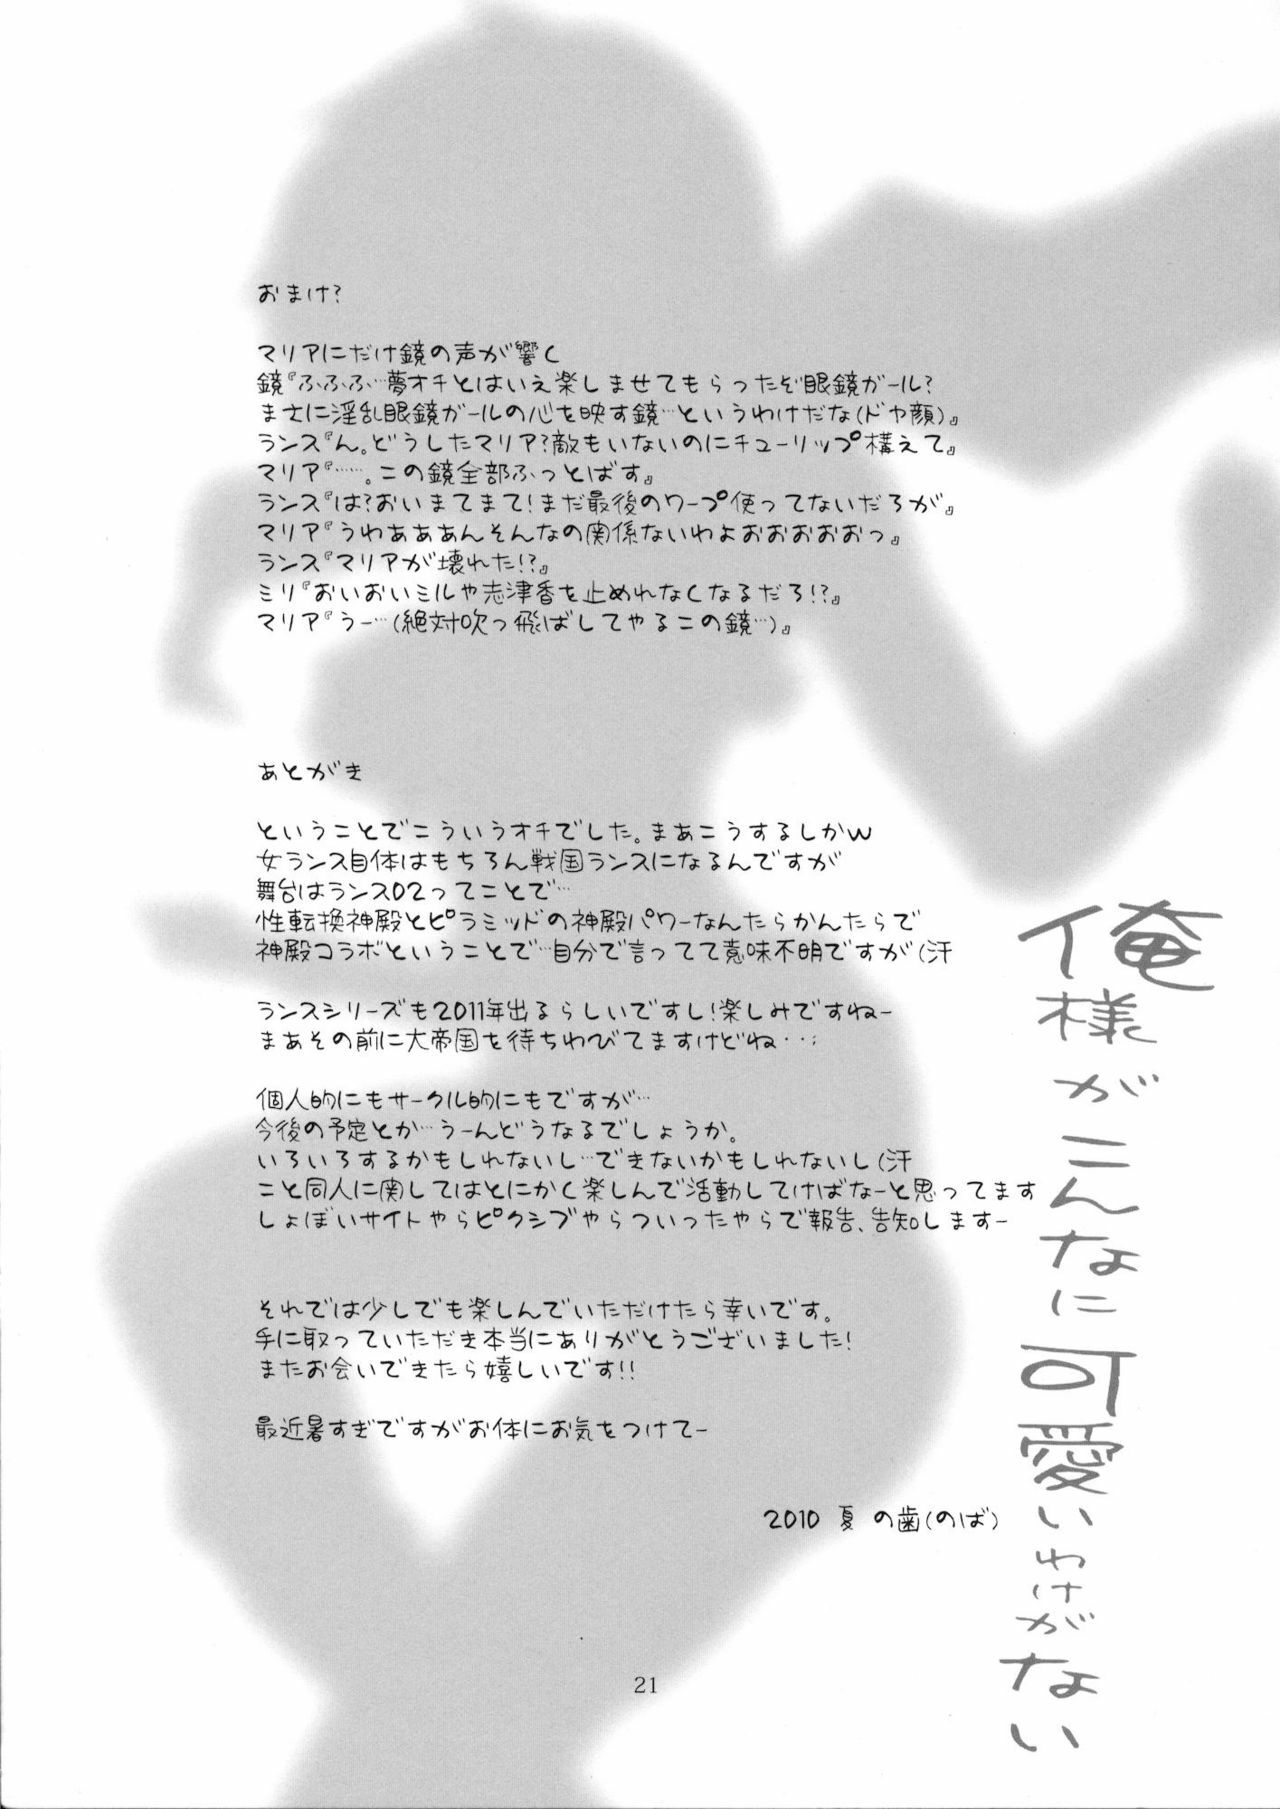 おまけ?
マリアにだけ鏡の声が響く
鏡『ふふふ…夢オチとはいえ楽しませてもらったぞ眼鏡ガール?
まさに淫乱眼鏡ガールの心を映す鏡…というわけだな(ドヤ顔)』
ランス『ん。どうしたマリア?敵もいないのにチューリップ構えて』
マリア『……。この鏡全部ふっとばす』
ランス『は?おいまてまて!まだ最後のワープ使ってないだろが』
マリア『うわぁぁぁんそんなの関係ないわよおおおおおっ』
ランス『マリアが壊れた!?』
ミリ『おいおいミルや志津香を止めれなくなるだろ!?』
マリア『うー…(絶対吹っ飛ばしてやるこの鏡…)』
あとがき
ということでこういうオチでした。まあこうするしかw
女ランス自体はもちろん戦国ランスになるんですが
舞台はランス02ってことで…
性転換神殿とピラミッドの神殿パワーなんたらかんたらで
神殿コラボということで…自分で言ってて意味不明ですが(汗
ランスシリーズも2011年出るらしいですし!楽しみですねー
まあその前に大帝国を待ちわびてますけどね・・;
個人的にもサークル的にもですが…
今後の予定とか…うーんどうなるでしょうか。
いろいろするかもしれないし…できないかもしれないし(汗
こと同人に関してはとにかく楽しんで活動してけばなーと思ってます
しょぼいサイトやらピクシブやらついったやらで報告、告知しますー
それでは少しでも楽しんでいただけたら幸いです。
手に取っていただき本当にありがとうございました!
またお会いできたら嬉しいです!!
最近暑すぎですがお体にお気をつけてー
2010 夏 の歯(のば)
俺様がこんなに可愛いわけがない
21